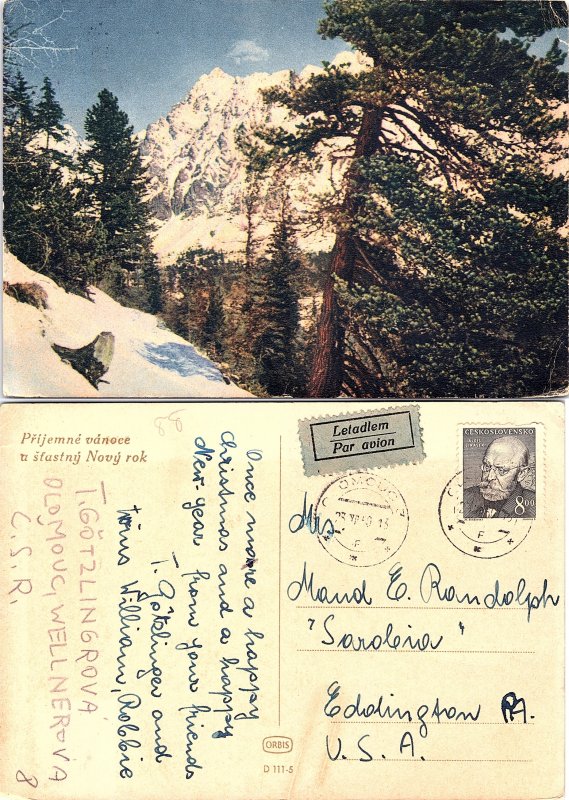 Příjemné vánoce
a šťastný Nový rok
T. GÖTZLINGROVÁ
OLOMOUC, WELLNEROVA
8
Č.S.R.
Once more a happy
Christmas and a happy
New-year from your friends
T. Götzlinger and
William, Robbie
Letadlem
Par avion
ČESKOSLOVENSKO
ALOIS
JIRÁSEK
8.00
OLOMOUC
F
Mrs
Maud E. Randolph
"Sarobia"
Eddington PA.
U.S.A.
ORBIS
D 111-5